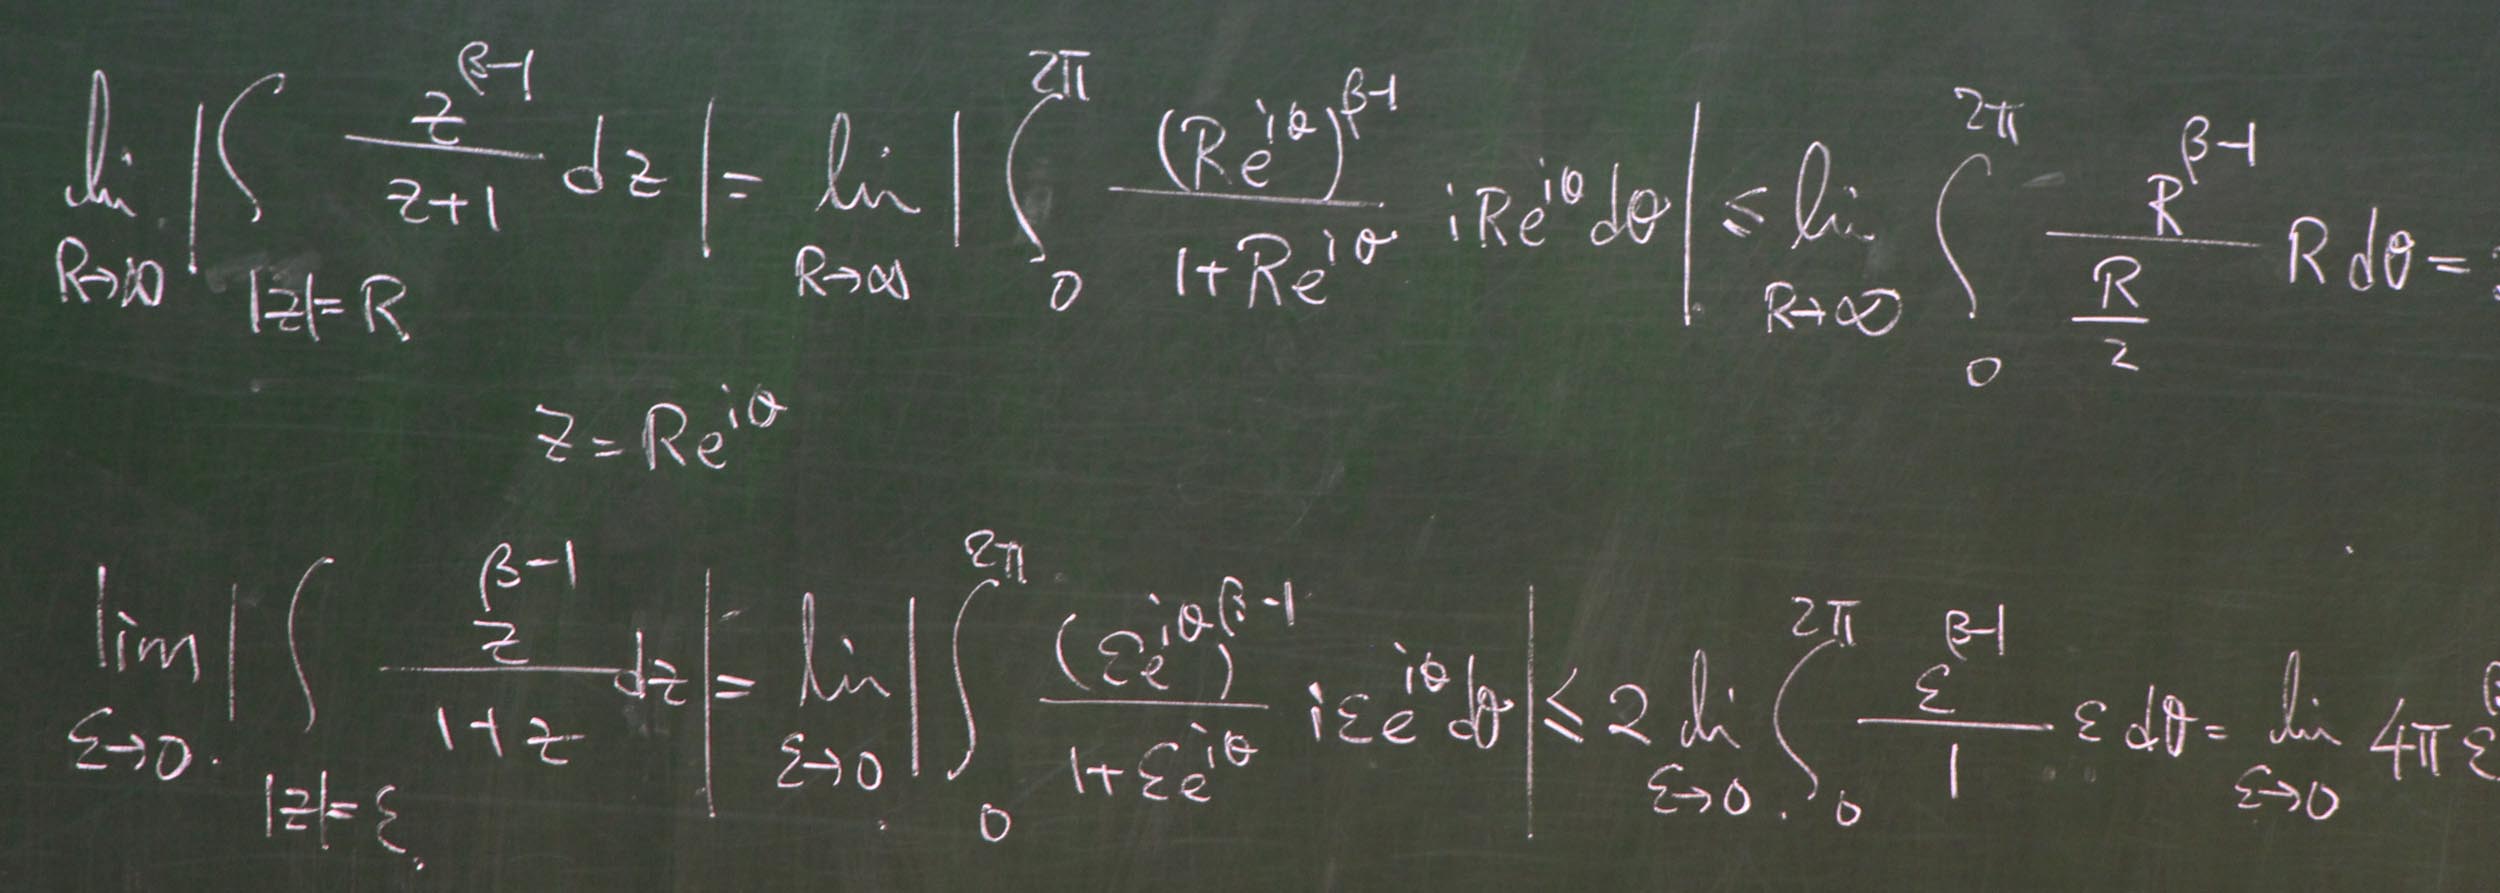 lim_{R→∞} |∫_{|z|=R} z^{β-1}/(z+1) dz| = lim_{R→∞} |∫_0^{2π} (Re^{iθ})^{β-1}/(1+Re^{iθ}) iRe^{iθ} dθ| ≤ lim_{R→∞} ∫_0^{2π} R^{β-1}/(R/2) R dθ =
z = Re^{iθ}
lim_{ε→0} |∫_{|z|=ε} z^{β-1}/(1+z) dz| = lim_{ε→0} |∫_0^{2π} (εe^{iθ})^{β-1}/(1+εe^{iθ}) iεe^{iθ} dθ| ≤ 2 lim_{ε→0} ∫_0^{2π} ε^{β-1}/1 ε dθ = lim_{ε→0} 4π ε^β